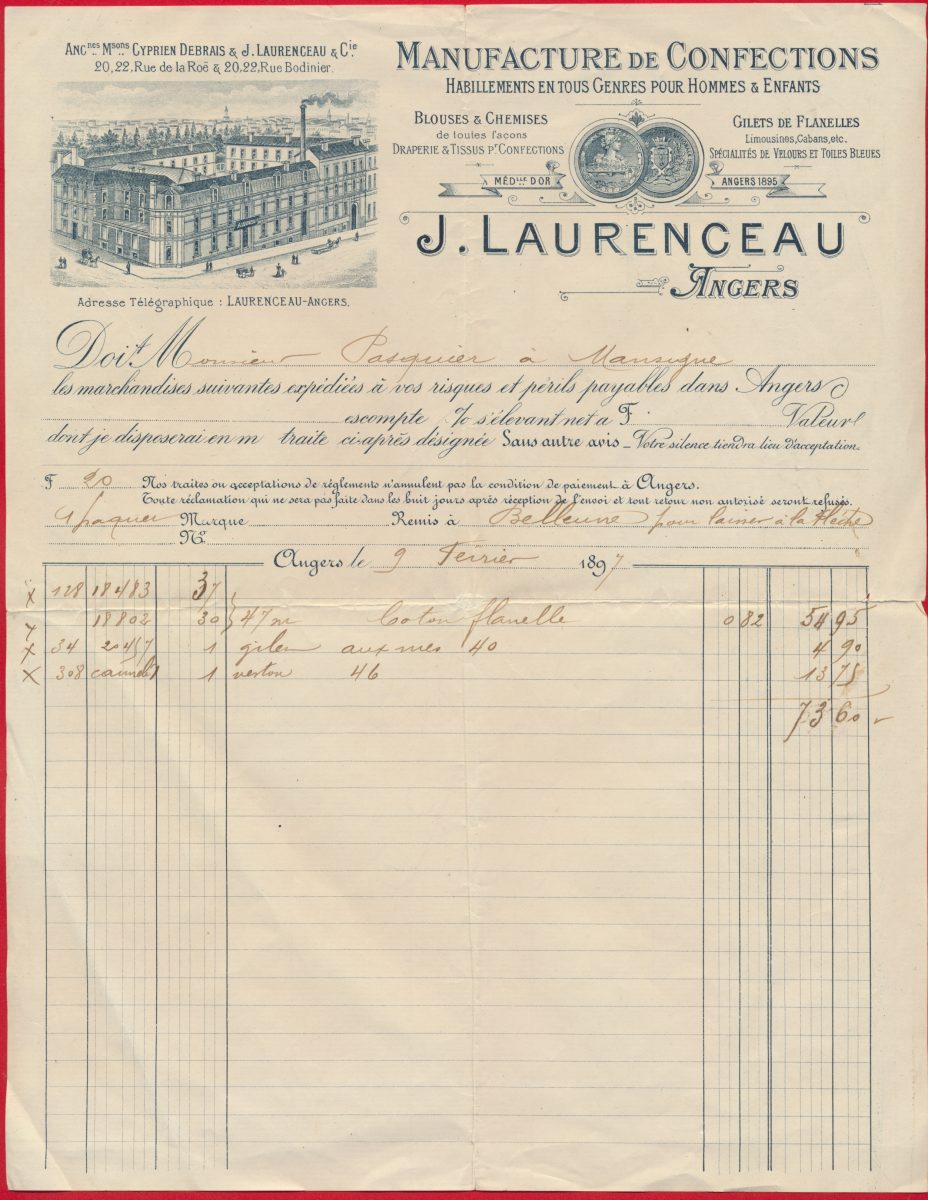 Ancnes Msons Cyprien Debrais & J. Laurenceau & Cie
20,22, Rue de la Roë & 20,22, Rue Bodinier.
Adresse Télégraphique : Laurenceau-Angers.
Manufacture de Confections
Habillements en tous Genres pour Hommes & Enfants
Blouses & Chemises
de toutes façons
Draperie & Tissus pr Confections
Gilets de Flanelles
Limousines, Cabans, etc.
Spécialités de Velours et Toiles Bleues
Médlle d'or
Angers 1895
J. Laurenceau
Angers
Doit Monsieur Pasquier à Mansigne
les marchandises suivantes expédiées à vos risques et périls payables dans Angers
escompte % s'élevant net a F. Valeur
dont je disposerai en m traite ci-après désignée Sans autre avis _ Votre silence tiendra lieu d'acceptation.
F 20 Nos traites ou acceptations de réglements n'annulent pas la condition de paiement à Angers.
Toute réclamation qui ne sera pas faite dans les huit jours après réception de l'envoi et tout retour non autorisé seront refusés.
Marque Remis à Belleuvre pour laisser à la Flèche
No.
Angers le 9 Février 1897
x 128 18483 37
18802 30 } 47 m Coton flanelle 0 82 54 95
x 34 20457 1 gilen 40 4 90
x 308 1 veston 46 13 75
73 60